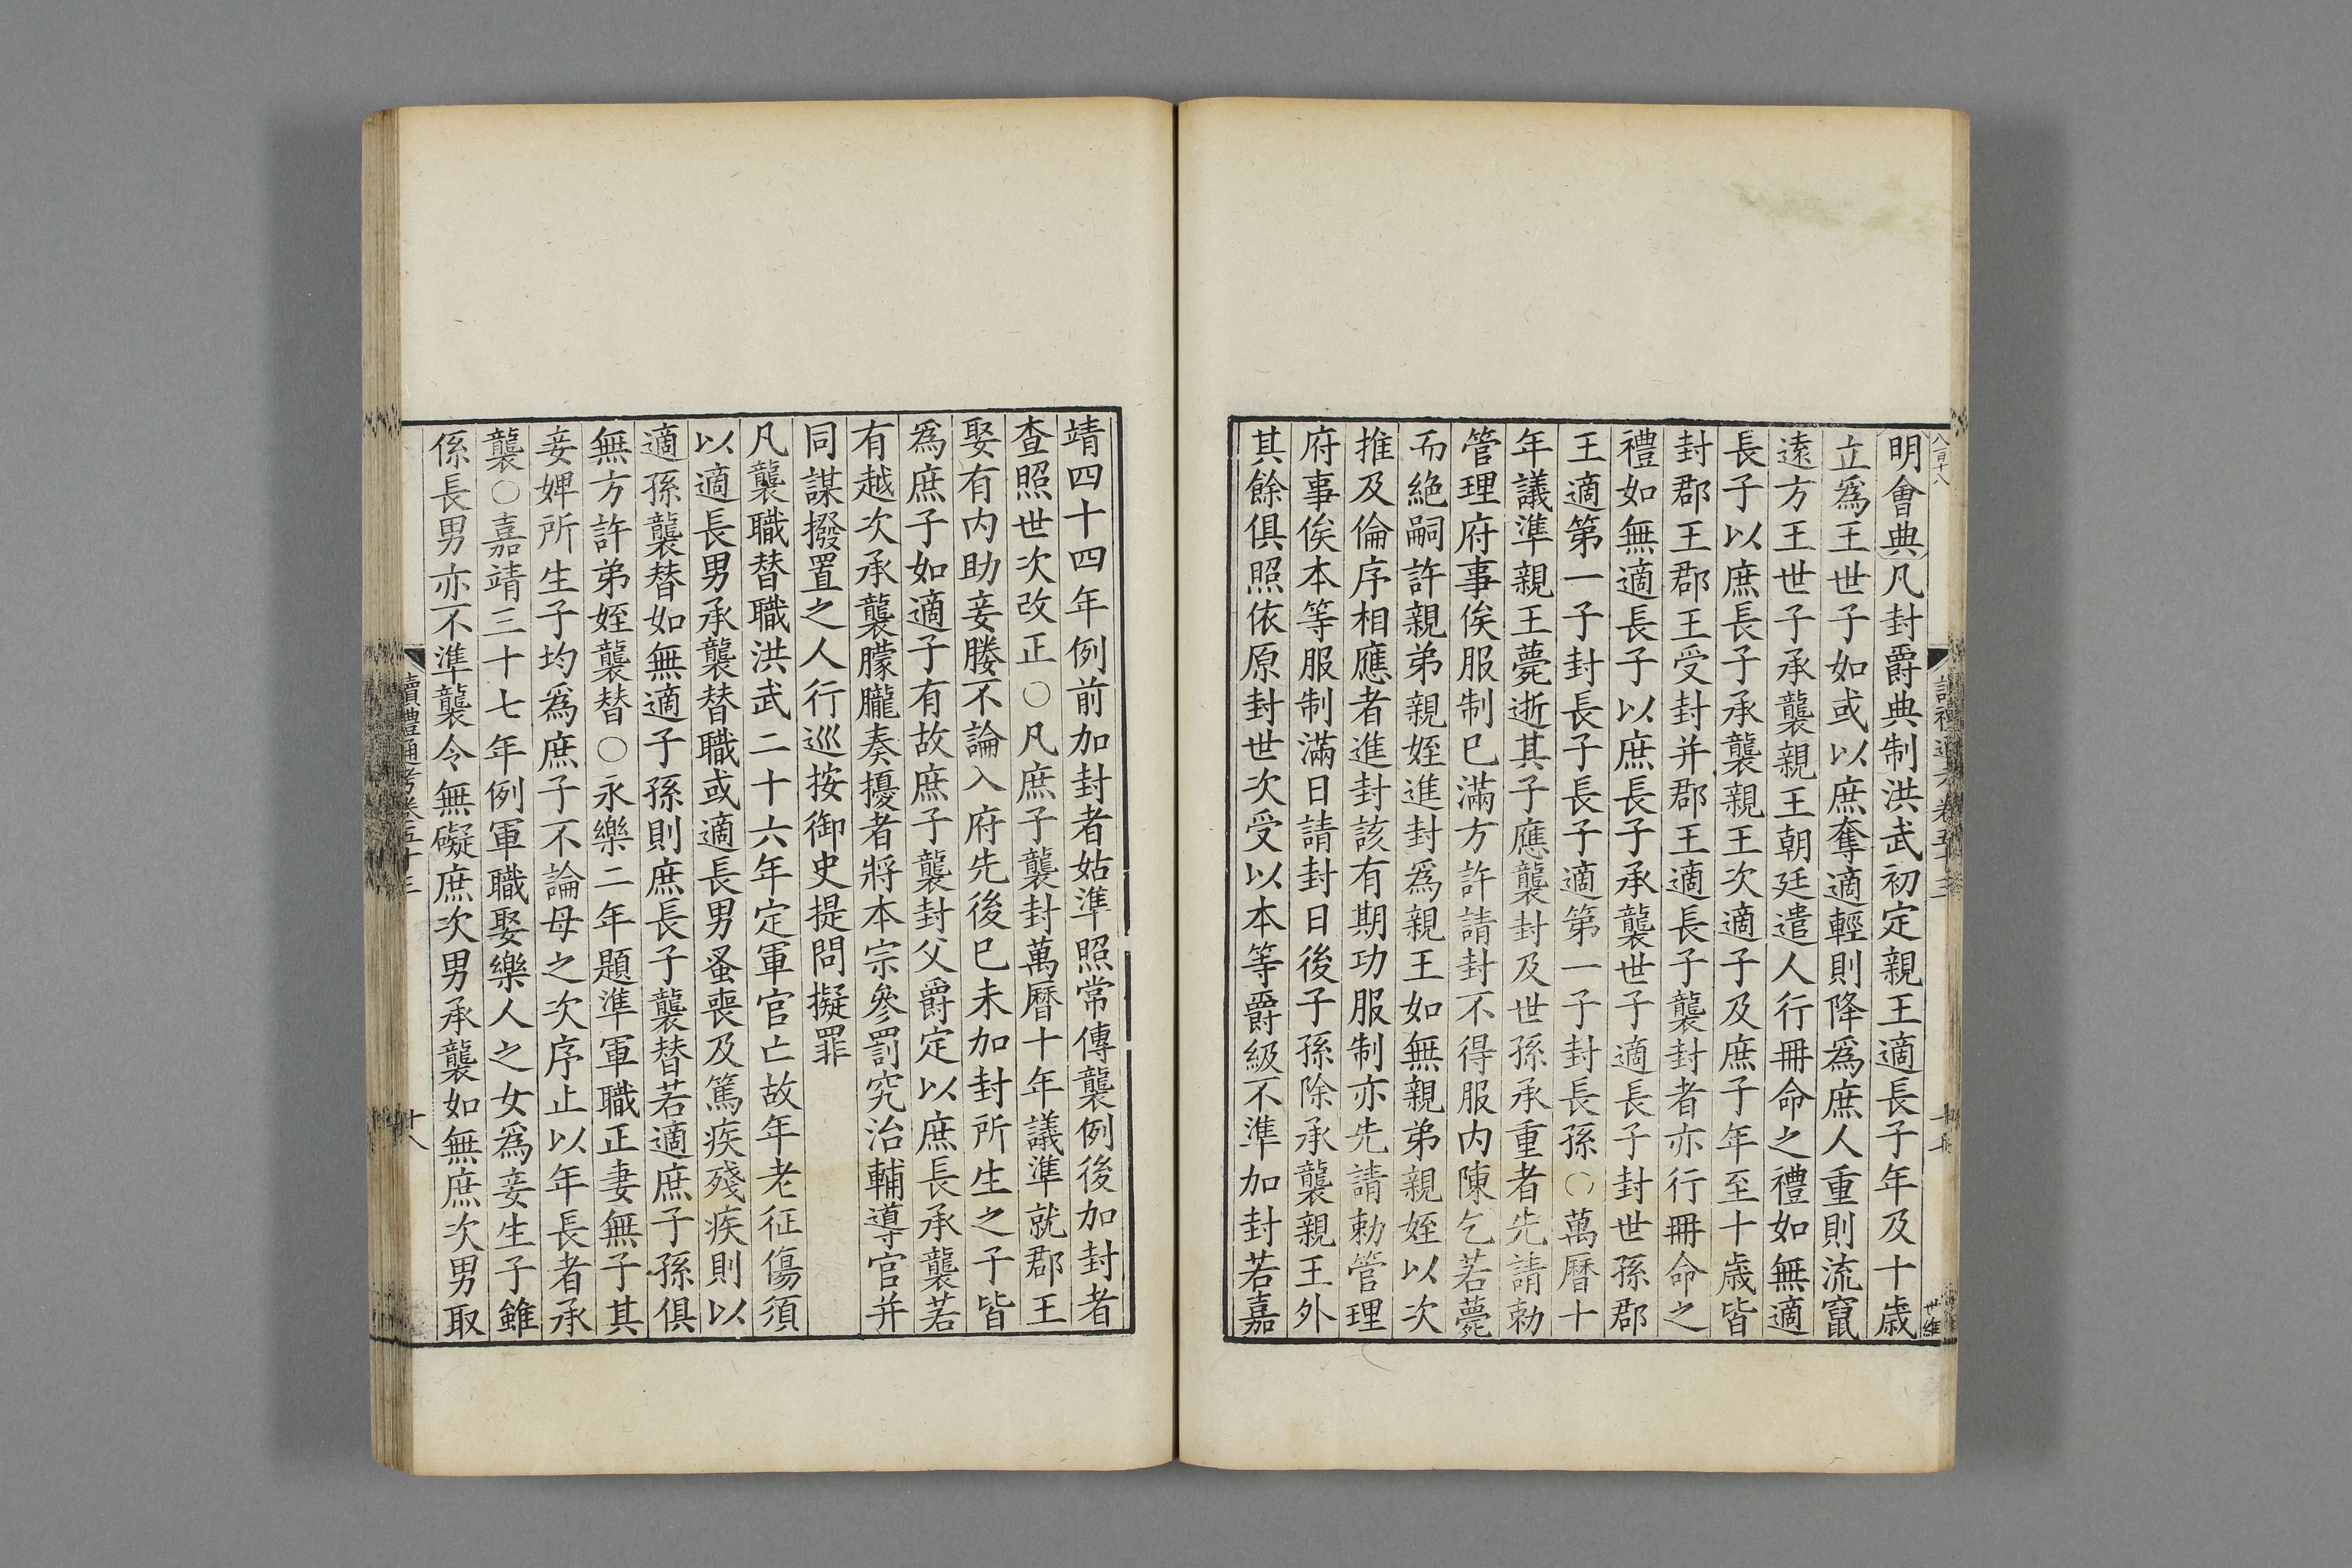 明會典凡封爵典制洪武初定親王適長子年及十歲
立爲王世子如或以庶奪適輕則降爲庶人重則流竄
遠方王世子承襲親王朝廷遣人行冊命之禮如無適
長子以庶長子承襲親王次適子及庶子年至十歲皆
封郡王郡王受封并郡王適長子襲封者亦行冊命之
禮如無適長子以庶長子承襲世子適長子封世孫郡
王適第一子封長子長子適第一子封長孫○萬曆十
年議準親王薨逝其子應襲封及世孫承重者先請勅
管理府事俟服制已滿方許請封不得服內陳乞若薨
而絶嗣許親弟親姪進封爲親王如無親弟親姪以次
推及倫序相應者進封該有期功服制亦先請勅管理
府事俟本等服制滿日請封日後子孫除承襲親王外
其餘俱照依原封世次受以本等爵級不準加封若嘉
靖四十四年例前加封者姑準照常傳襲例後加封者
查照世次改正○凡庶子襲封萬曆十年議準就郡王
娶有内助妾媵不論入府先後已未加封所生之子皆
爲庶子如適子有故庶子襲封父爵定以庶長承襲若
有越次承襲朦朧奏擾者將本宗參罰究治輔導官并
同謀撥置之人行巡按御史提問擬罪
凡襲職替職洪武二十六年定軍官亡故年老征傷須
以適長男承襲替職或適長男蚤喪及篤疾殘疾則以
適孫襲替如無適子孫則庶長子襲替若適庶子孫俱
無方許弟姪襲替○永樂二年題準軍職正妻無子其
妾婢所生子均爲庶子不論母之次序止以年長者承
襲○嘉靖三十七年例軍職娶樂人之女爲妾生子雖
係長男亦不準襲令無礙庶次男承襲如無庶次男取
讀禮通考卷五十三
十八